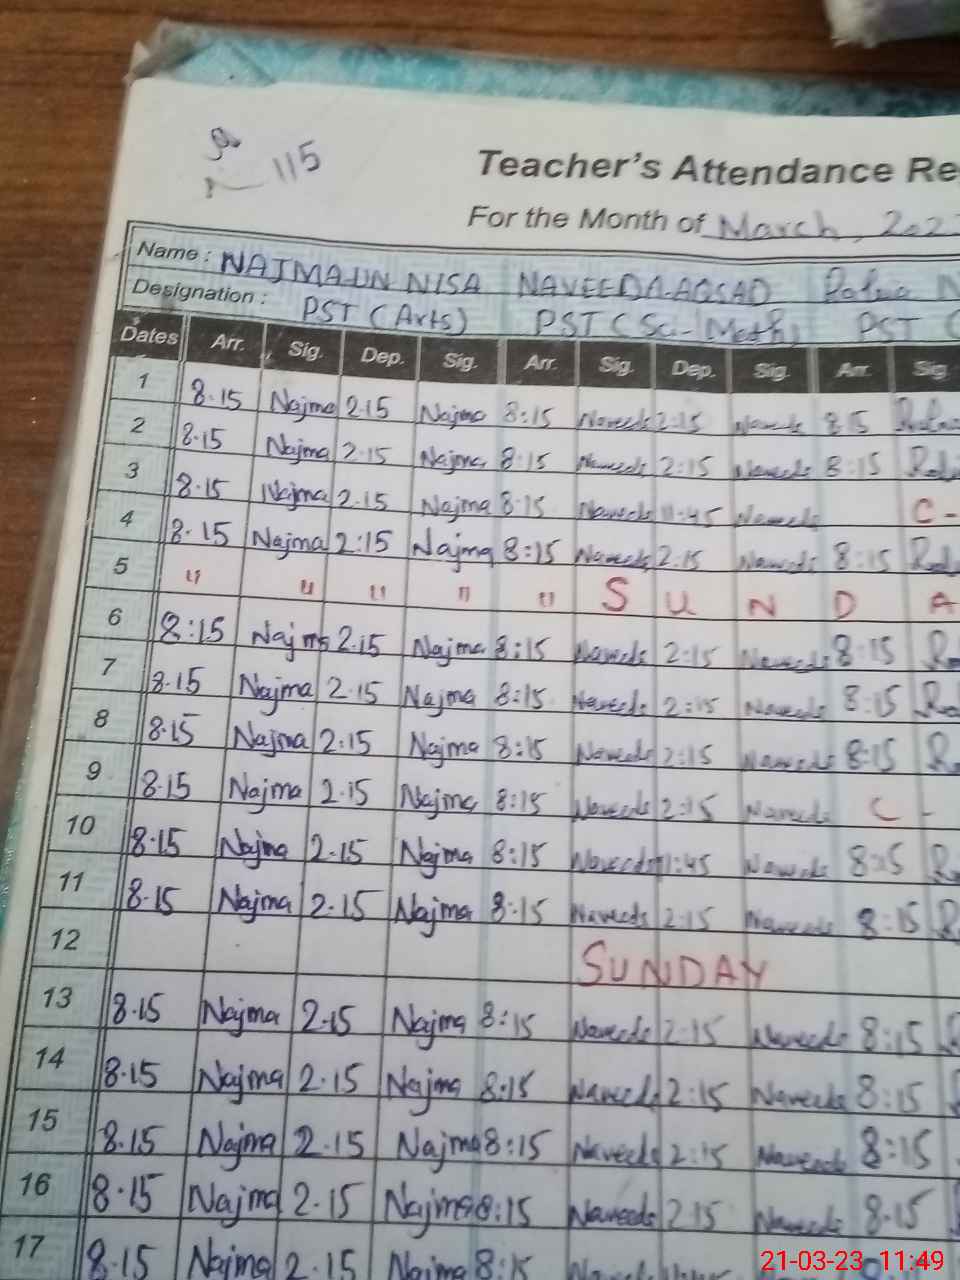 115
Teacher's Attendance Re
For the Month of March, 202
Name : NAJMA-UN NISA NAVEEDA AQSAD
Designation : PST (Arts) PST (Sci-Math) PST (
Dates Arr. Sig. Dep. Sig. Arr. Sig. Dep. Sig. Arr. Sig
1 8.15 Najma 2.15 Najma 8:15 Naveeda 2:15 Naveeda 8:15
2 8.15 Najma 2.15 Najma 8:15 Naveeda 2:15 Naveeda 8:15
3 8.15 Najma 2.15 Najma 8:15 Naveeda 11:45 Naveeda C -
4 8.15 Najma 2:15 Najma 8:15 Naveeda 2.15 Naveeda 8:15
5 " " " " " S U N D A
6 8:15 Najma 2.15 Najma 8:15 Naveeda 2:15 Naveeda 8:15
7 8.15 Najma 2.15 Najma 8:15 Naveeda 2:15 Naveeda 8:15
8 8.15 Najma 2:15 Najma 8:15 Naveeda 2:15 Naveeda 8:15
9 8.15 Najma 2.15 Najma 8:15 Naveeda 2:15 Naveeda C -
10 8.15 Najma 2.15 Najma 8:15 Naveeda 11:45 Naveeda 8:15
11 8.15 Najma 2.15 Najma 8:15 Naveeda 2:15 Naveeda 8:15
12 SUNDAY
13 8.15 Najma 2.15 Najma 8:15 Naveeda 2:15 Naveeda 8:15
14 8.15 Najma 2.15 Najma 8:15 Naveeda 2:15 Naveeda 8:15
15 8.15 Najma 2.15 Najma 8:15 Naveeda 2:15 Naveeda 8:15
16 8.15 Najma 2.15 Najma 8:15 Naveeda 2:15 Naveeda 8.15
17 8.15 Najma 2.15 Najma 8:15
21-03-23 11:49